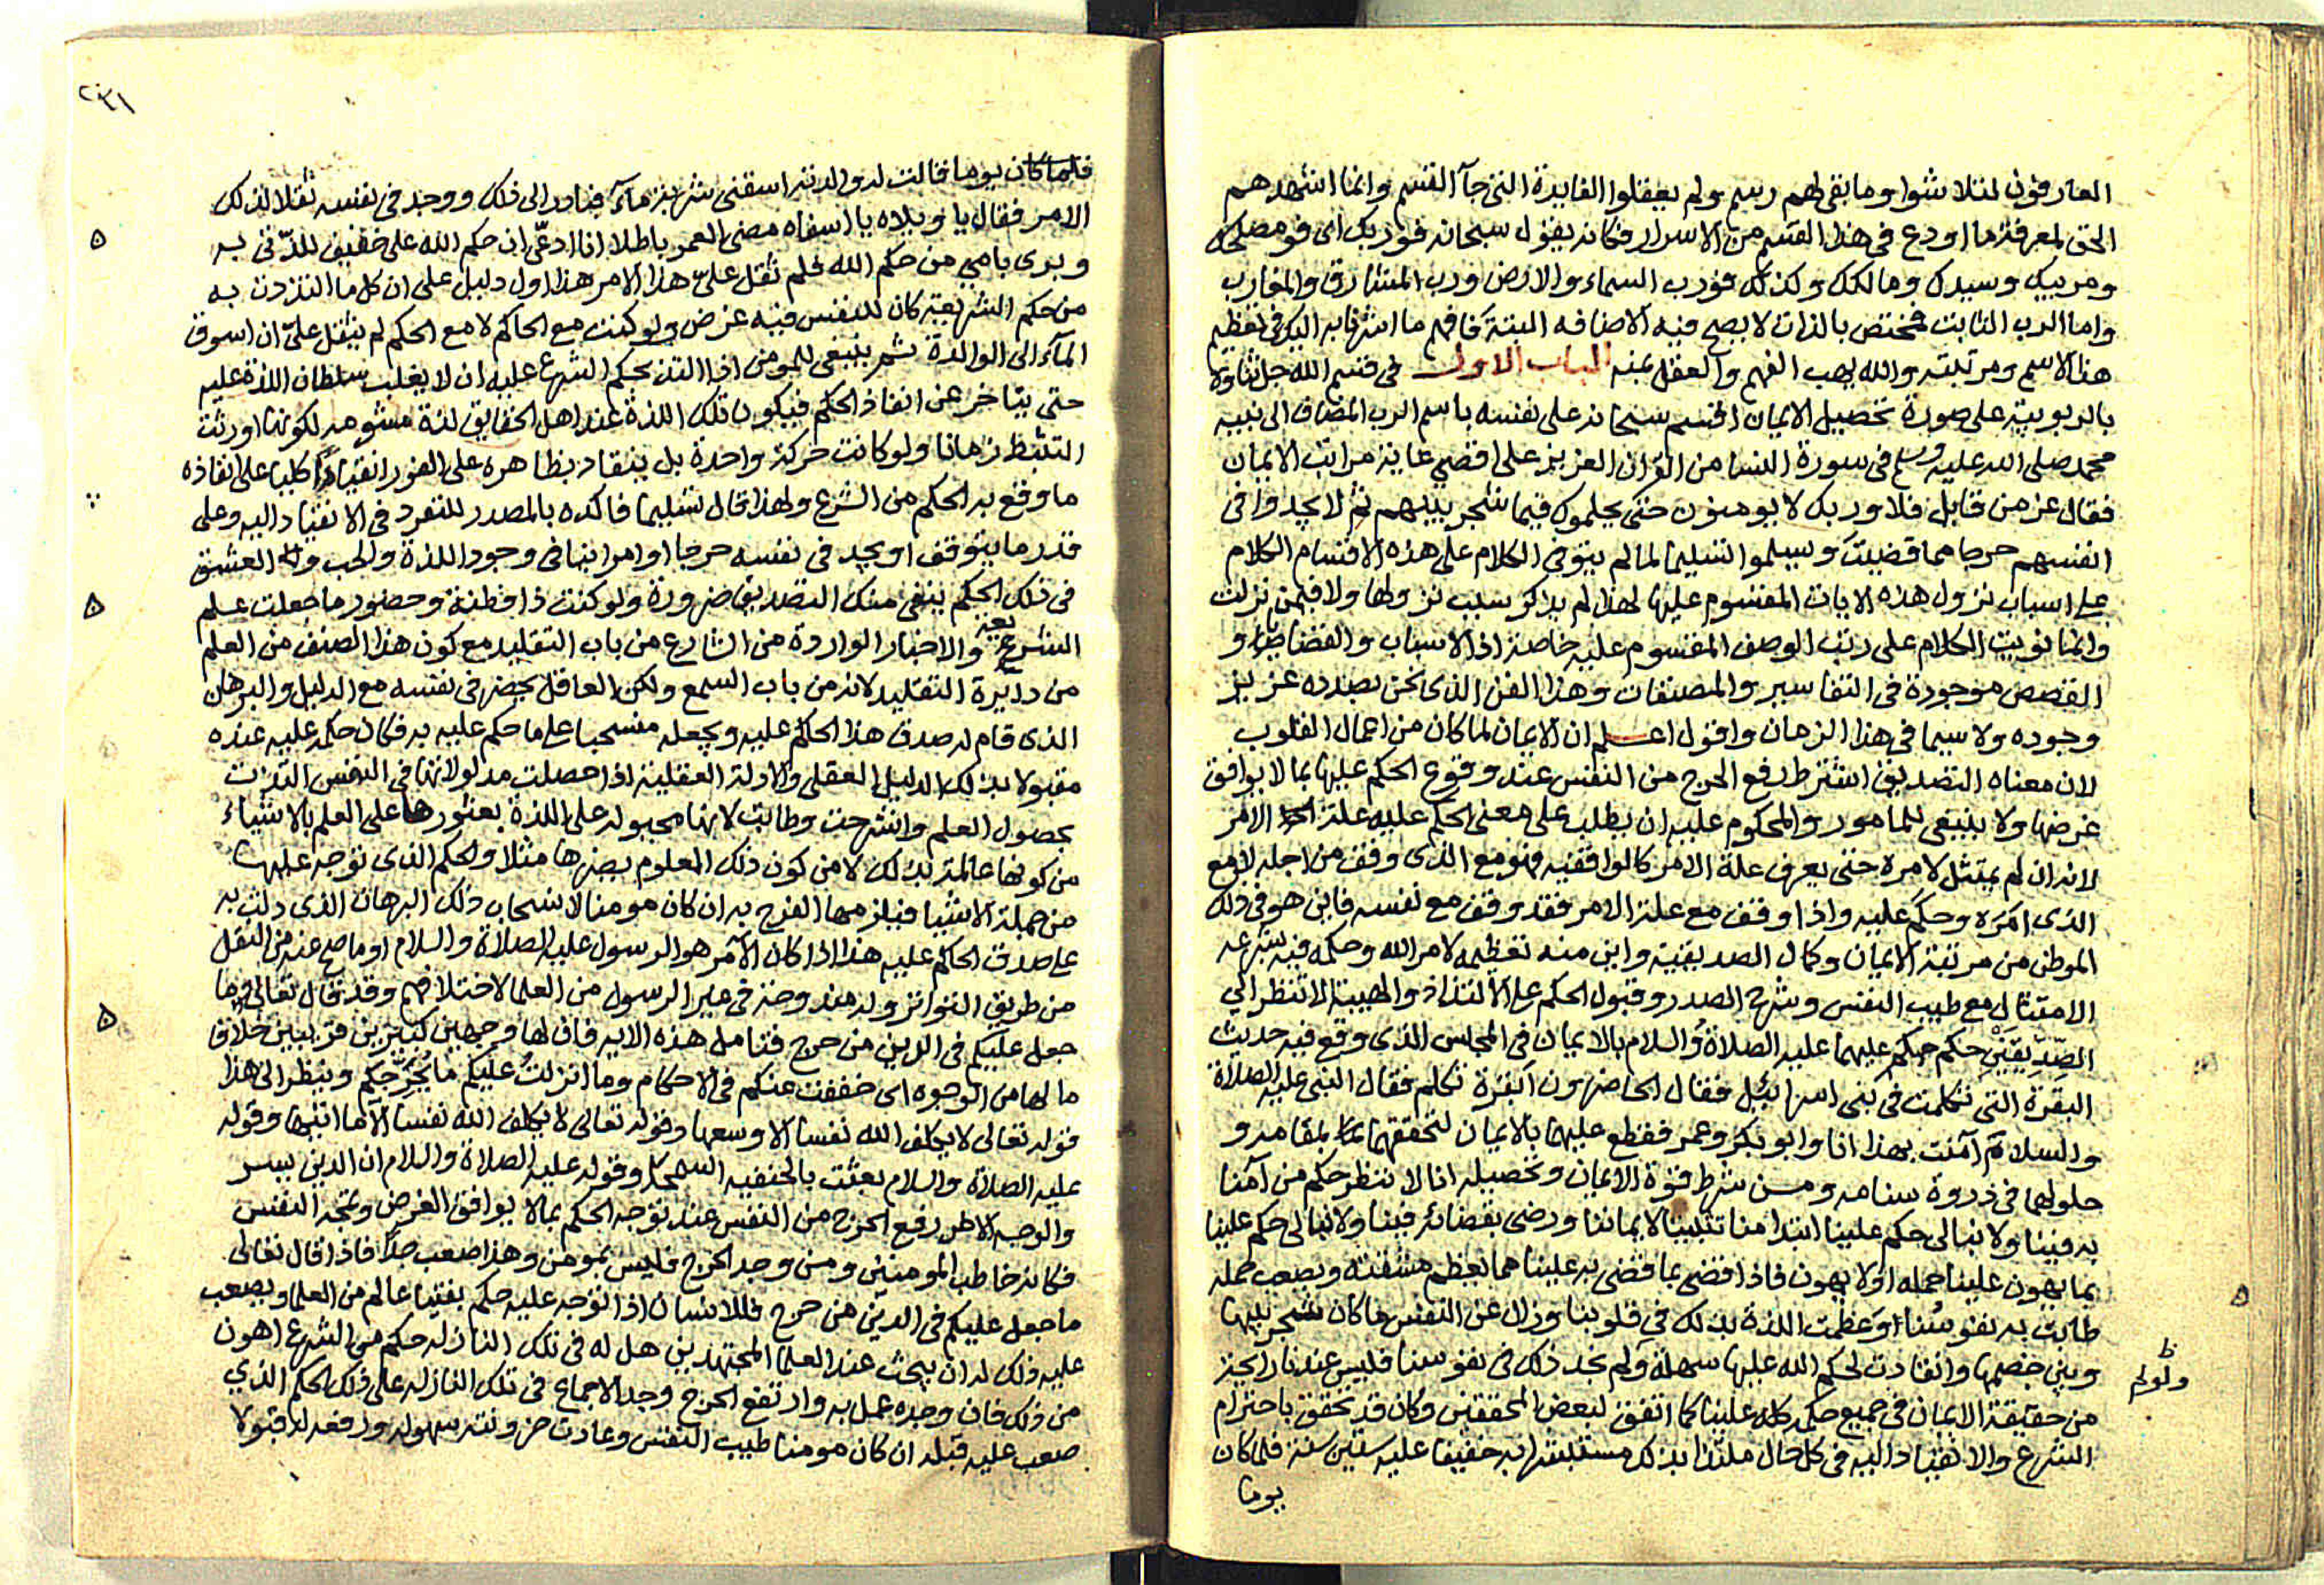 العارفون لتلاشوا وما بقي لهم رسم ولم يعقلوا الفايدة التي جآ القسم وانما اشهدهم
الحق لمعرفة ما اودع في هذا القسم من الاسرار فكانه يقول سبحانه فوربك اى فو مصلحك
ومربيك وسيدك ومالكك وكذلك فورب السماء والارض ورب المشارق والمغارب
واما الرب الثابت فمختص بالذات لا يصح فيه الاضافه البتة فافهم ما اشرنا به اليك في تعظيم
هذا الاسم ومرتبته والله يهب الفهم والعقل بمنه الباب الاول في قسم الله جل ثناوه
بالربوبية على صورة تحصيل الايمان اقسم سبحانه على نفسه باسم الرب المضاف الى نبيه
محمد صلى الله عليه وسلم في سورة النسا من القرآن العزيز على اقصى غاية مراتب الايمان
فقال عز من قايل فلا وربك لا يومنون حتى يحكموك فيما شجر بينهم ثم لا يجدوا في
انفسهم حرجا مما قضيت ويسلموا تسليما لما لم يتوقف الكلام على هذه الاقسام الكلام
على اسباب نزول هذه الايات المقسوم عليها لهذا لم يذكر سبب نزولها ولا فيمن نزلت
وانما نويت الكلام على رتب الوصف المقسوم عليه خاصة اذ الاسباب والقضايا و
القصص موجودة في التفاسير والمصنفات وهذا الفن الذى نحن بصدده عزيز
وجوده ولا سيما في هذا الزمان واقول اعلم ان الايمان لما كان من اعمال القلوب
لان معناه التصديق اشترط رفع الحرج من النفس عند وقوع الحكم عليها بما لا يوافق
غرضها ولا ينبغي للمامور والمحكوم عليه ان يطلب على معنى الحكم عليه علة الامر
لانه ان لم يمتثل لامره حتى يعرف علة الامر كالواقفيه فهو مع الذى وقف من اجله لا مع
الذى امره وحكم عليه واذا وقف مع علة الامر فقد وقف مع نفسه فاين هو في ذلك
الموطن من مرتبة الايمان وكمال الصديقية واين منه تعظيمه لامر الله وحكمه فيه بشرعه
الامتثال مع طيب النفس وشرح الصدر وقبول الحكم على الالتذاذ والهيبة الا تنظر الي
الصديقين حكم عليهما عليه الصلاة والسلام بالايمان في المجلس الذى وقع فيه حديث
البقرة التي تكلمت في بني اسرائيل فقال الحاضرون ابقرة تكلم فقال النبي عليه الصلاة
والسلام آمنت بهذا انا وابو بكر وعمر فقطع عليهما بالايمان لتحققهما بمقامه و
حلولهما في ذروة سنامه ومن شرط قوة الايمان وتحصيله انا لا ننظر حكم من آمنا
به فينا ولا نبالى حكم علينا ابتدا منا تثبيتا لايماننا ورضى بقضائه فينا ولا نبالى حكم علينا
بما يهون علينا حمله اولا يهون فاذا قضى بما قضى به علينا مما يعظم مشقته ويصعب حمله
طابت به نفوسنا وعظمت اللذة بذلك في قلوبنا وزال عن النفس ما كان شجر بينها
وبين خصمها وانقادت لحكم الله عليها سهلة ولم نجد ذلك في نفوسنا فليس عندنا رايحة
ولو لم
من حقيقة الايمان في جميع حكمه كله علينا كما اتفق لبعض المحققين وكان قد تحقق باحترام
الشرع والانقياد اليه في كل حال ملتذا بذلك مستبشرا به خفيفا عليه ستين سنة فلما كان
يوما
٢٣١
فلما كان يوما قالت له والدته اسقني شربة مآء فبادر الى ذلك ووجد في نفسه ثقلا لذلك
الامر فقال يا ويلاه يا اسفاه مضى العمر باطلا انا ادعى ان حكم الله على خفيف للذتي به
وبرى بامي من حكم الله فلم ثقل على هذا الامر هذا اول دليل على ان كل ما التذذت به
من حكم الشريعة كان للنفس فيه غرض ولو كنت مع الحاكم لا مع الحكم لم يثقل على ان اسوق
المآء الى الوالدة ثم ينبغي للمومن اذا التذ بحكم الشرع عليه ان لا يغلب سلطان اللذة عليه
حتى يتاخر عن انفاذ الحكم فيكون تلك اللذة عند اهل الحقايق لذة مشومه لكونها اورثت
التثبط زمانا ولو كانت حركة واحدة بل ينقاد بظاهره على الفور انقيادا كليا على انفاذه
ما وقع به الحكم من الشرع ولهذا قال تسليما فاكده بالمصدر للتفرد في الانقياد اليه وعلى
قدر ما يتوقف او يجد في نفسه حرجا او امرا ينافي وجود اللذة والحب والعشق
في ذلك الحكم ينتفي منك التصديق ضرورة ولو كنت ذا فطنة وحضور ما جعلت علم
الشريعة والاخبار الواردة من الشارع من باب التقليد مع كون هذا الصنف من العلم
من دايرة التقليد لانه من باب السمع ولكن العاقل يحضر في نفسه مع الدليل والبرهان
الذى قام له صدق هذا الحاكم عليه ويجعله منسحبا على ما حكم عليه به فكان حكمه عليه عنده
مقبولا بذلك الدليل العقلي والادلة العقلية اذا حصلت مدلولاتها في النفس التذت
بحصول العلم وانشرحت وطابت لانها مجبوله على اللذة بعثورها على العلم بالاشياء
من كونها عالمة بذلك لا من كون ذلك المعلوم يضرها مثلا والحكم الذى توجه عليها
من جملة الاشيا فيلزمها الفرح به ان كان مومنا لانسحاب ذلك البرهان الذى دلت به
على صدق الحاكم عليه هذا اذا كان الآمر هو الرسول عليه الصلاة والسلام او ما صح عنه من النقل
من طريق التواتر ولا مندوحة في غير الرسول من العلما لاختلافهم وقد قال تعالى وما
جعل عليكم في الدين من حرج فتامل هذه الايه فان لها وجهين كبيرين قريبين خلاف
ما لها من الوجوه اى خففت عنكم في الاحكام وما انزلت عليكم ما يحرجكم وينظر الى هذا
قوله تعالى لا يكلف الله نفسا الا وسعها وقوله تعالى لا يكلف الله نفسا الا ما اتيها وقوله
عليه الصلاة والسلام بعثت بالحنفيه السمحا وقوله عليه الصلاة والسلام ان الدين يسر
والوجه الاخر رفع الحرج من النفس عند توجه الحكم بما لا يوافق الغرض وتمجه النفس
فكانه خاطب المومنين ومن وجد الحرج فليس بمومن وهذا صعب جدا فاذا قال تعالى
ما جعل عليكم في الدين من حرج فللانسان اذا توجه عليه حكم بفتيا عالم من العلما ويصعب
عليه ذلك له ان يبحث عند العلما المجتهدين هل له في تلك النازله حكم من الشرع اهون
من ذلك فان وجده عمل به وارتفع الحرج وجد الاجماع في تلك النازله على ذلك الحكم الذي
صعب عليه قبله ان كان مومنا طيب النفس وعادت حزونته سهوله ودفعه له قبولا